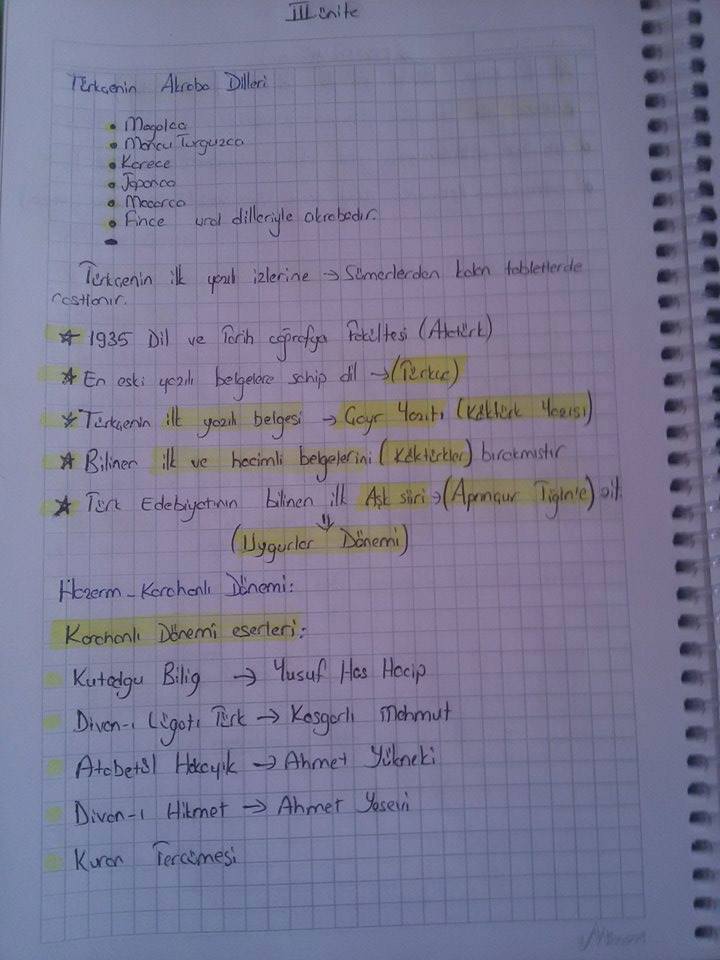 III ünite
Türkçenin Akraba Dilleri
• Mogolca
• Mancu Tunguzca
• Korece
• Japonca
• Macarca
• Fince ural dilleriyle akrabadır.
•
Türkçenin ilk yazılı izlerine → Sümerlerden kalan tabletlerde
rastlanır.
☆ 1935 Dil ve Tarih coğrafya Fakültesi (Atatürk)
☆ En eski yazılı belgelere sahip dil → (Türkçe)
☆ Türkçenin ilk yazılı belgesi → Çoyr Yazıtı (Köktürk Yazısı)
☆ Bilinen ilk ve hacimli belgelerini (Köktürkler) bırakmıştır
☆ Türk Edebiyatının bilinen ilk Aşk şiiri → (Aprınçur Tigin'e) ait.
⇓
(Uygurlar Dönemi)
Hazerm - Karahanlı Dönemi:
Karahanlı Dönemi eserleri:
Kutadgu Bilig → Yusuf Has Hacip
Divan-ı Lügatı Türk → Kaşgarlı Mahmut
Atabetül Hakayık → Ahmet Yükneki
Divan-ı Hikmet → Ahmet Yesevi
Kuran Tercümesi